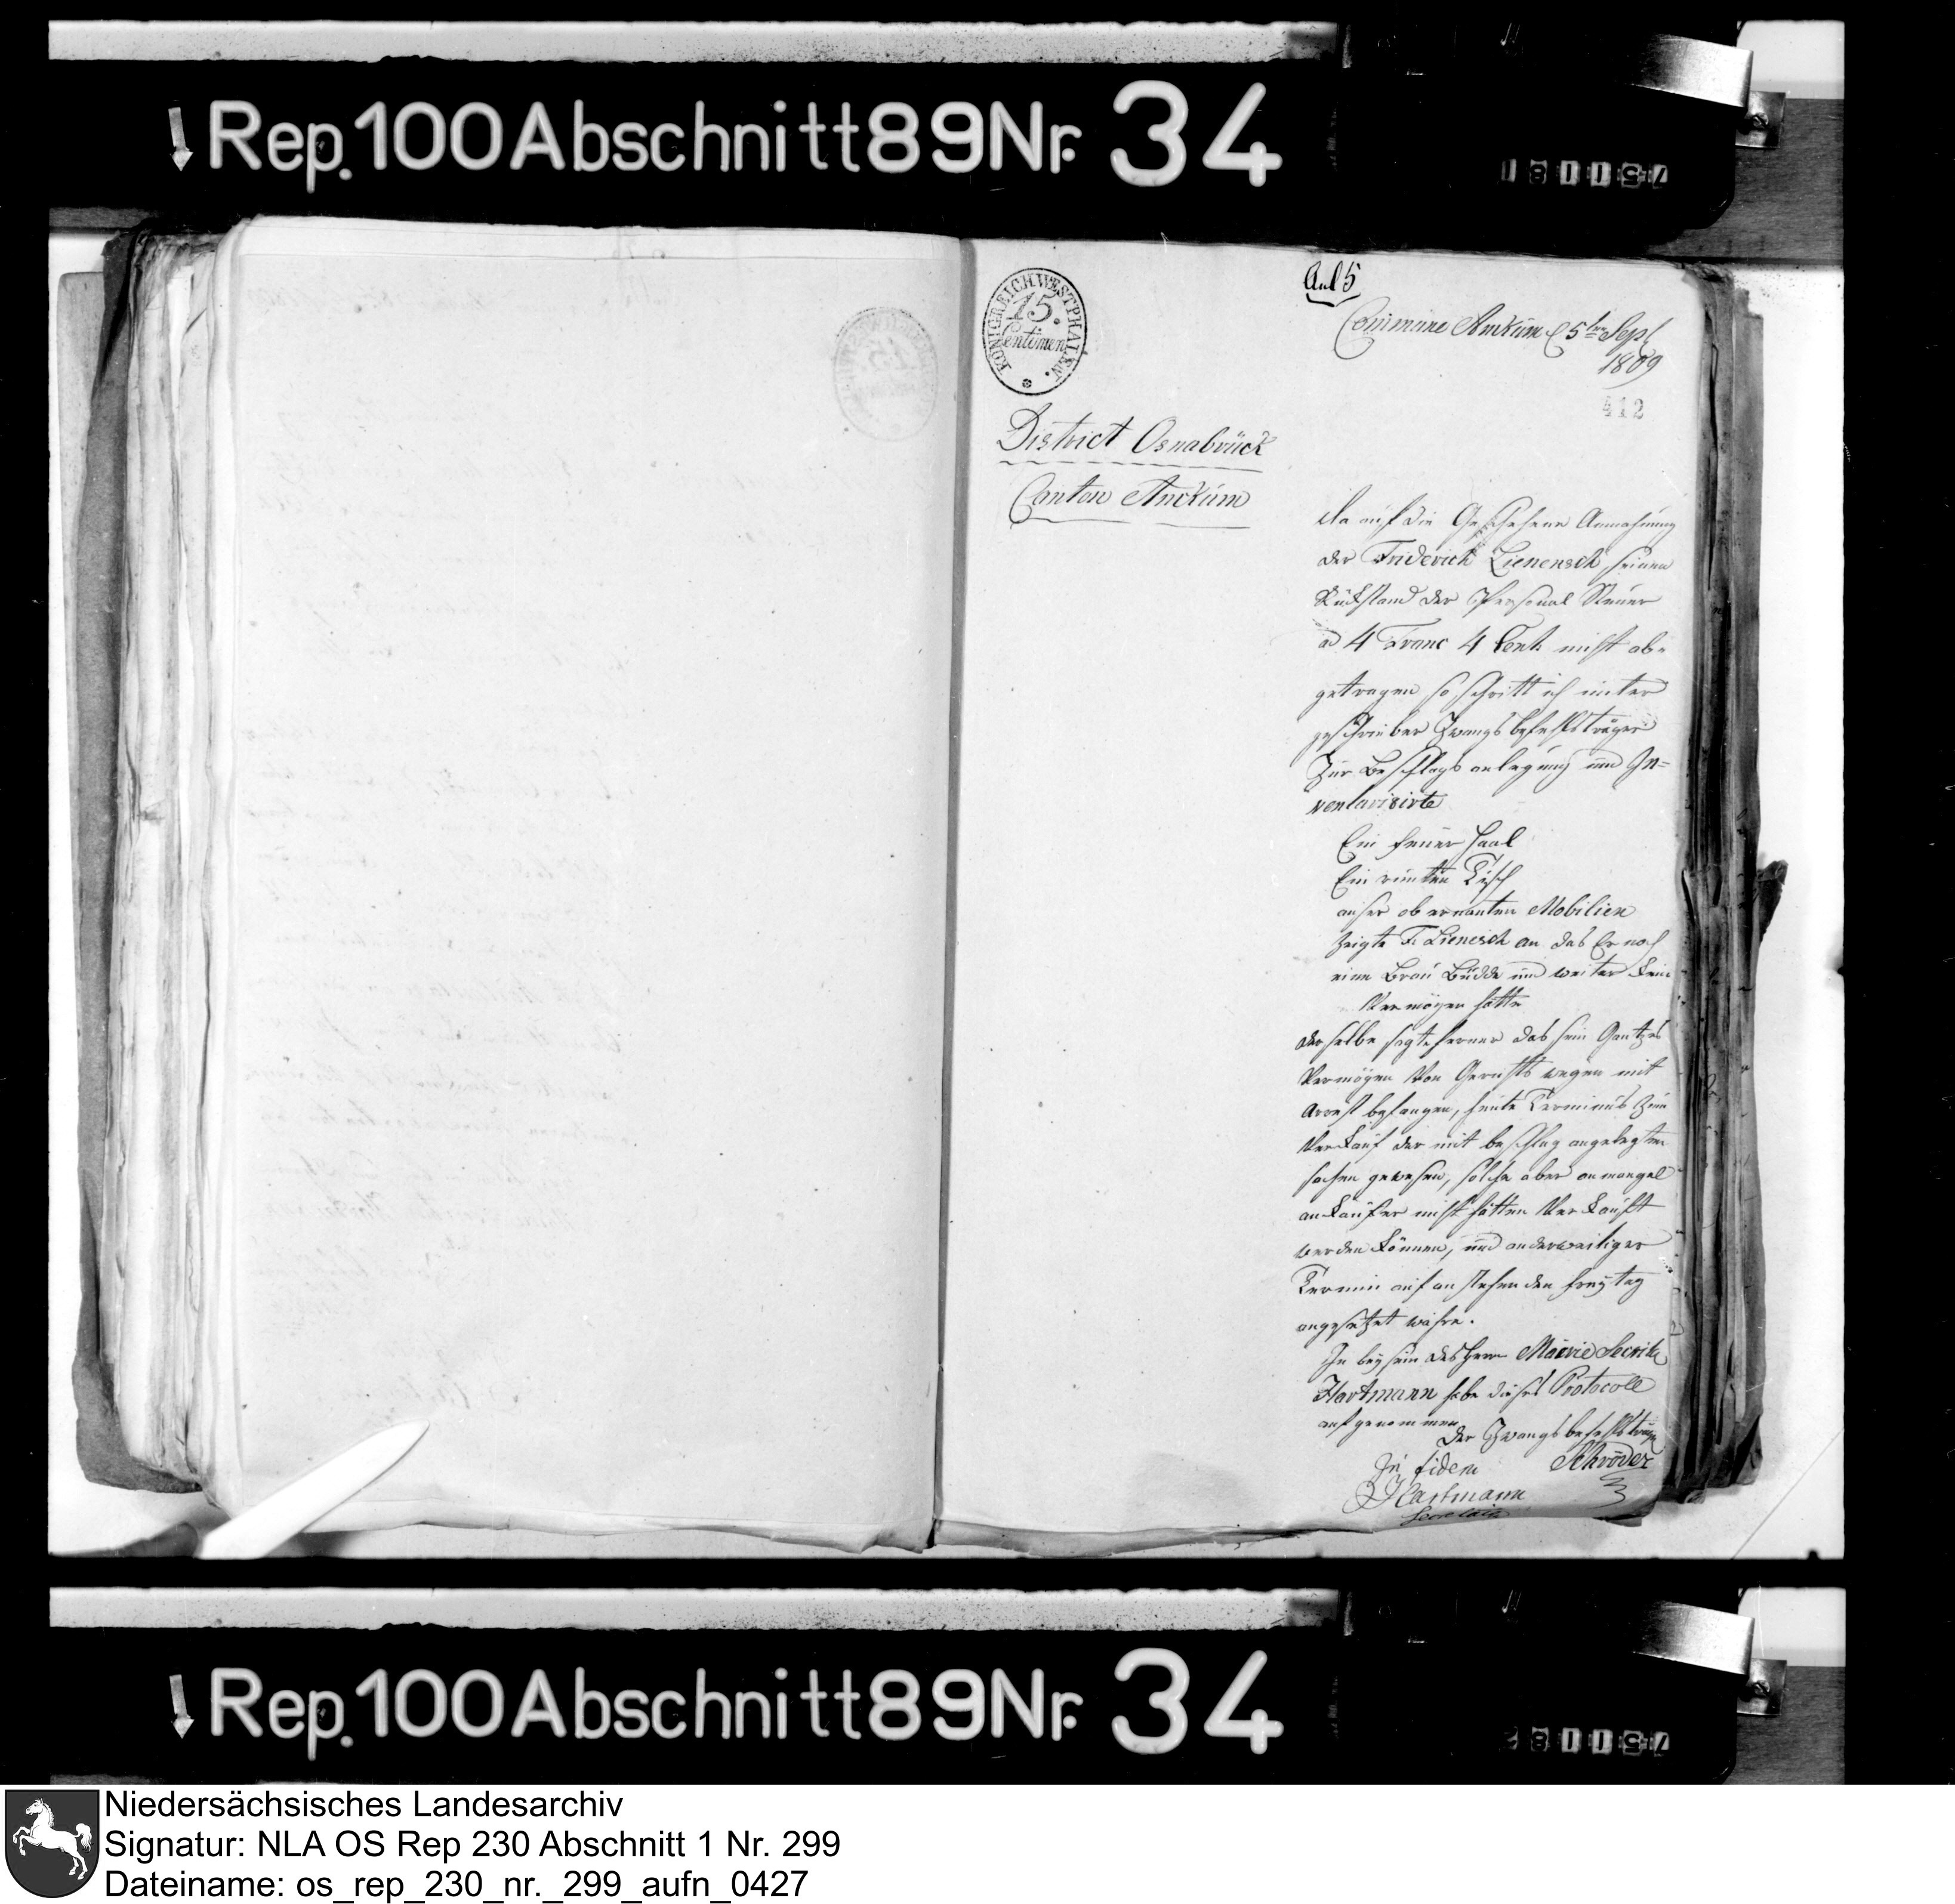 Rep. 100 Abschnitt 89 Nr. 34
181157
KÖNIGREICH WESTPHALEN.
15.
Centimen
Anl 5
Commune Anckum d 5ten Sept
1809
412
District Osnabrück
Canton Anckum
Da auf die Geschehene Anmahnung
der Friderich Lienensch seinen
Rückstand der Personal Steuer
ad 4 Franc 4 Cent. nicht ab-
getragen so schritt ich unter
geschriebener Zwangsbefehlsträger
Zur Beschlags anlegung und In-
ventarisirte
Ein feuer Haal
Ein runten Tisch
auser ob ernanten Mobilien
zeigte F. Lienesch an das Er noch
eine Brau Büdde und weiter kein
Vermögen hätte
derselbe sagte ferner das sein Gantzes
Vermögen Von Gerichts wegen mit
Arrest befangen, heute Terminus zum
Verkauf der mit beschlag angelegten
sachen gewesen, solche aber an mangel
an Käufer nicht hätten Verkauft
werden können, und anderweitiger
Termin auf anstehenden freytag
angesetzet währe.
In beysein des Herrn Mairie Secrita
Hartmann habe dieses Protocoll
aufgenommen
Der Zwangsbefehlsträger
In fidem Schröder
Hartmann
Secretair
Rep. 100 Abschnitt 89 Nr. 34
Niedersächsisches Landesarchiv
Signatur: NLA OS Rep 230 Abschnitt 1 Nr. 299
Dateiname: os_rep_230_nr._299_aufn_0427